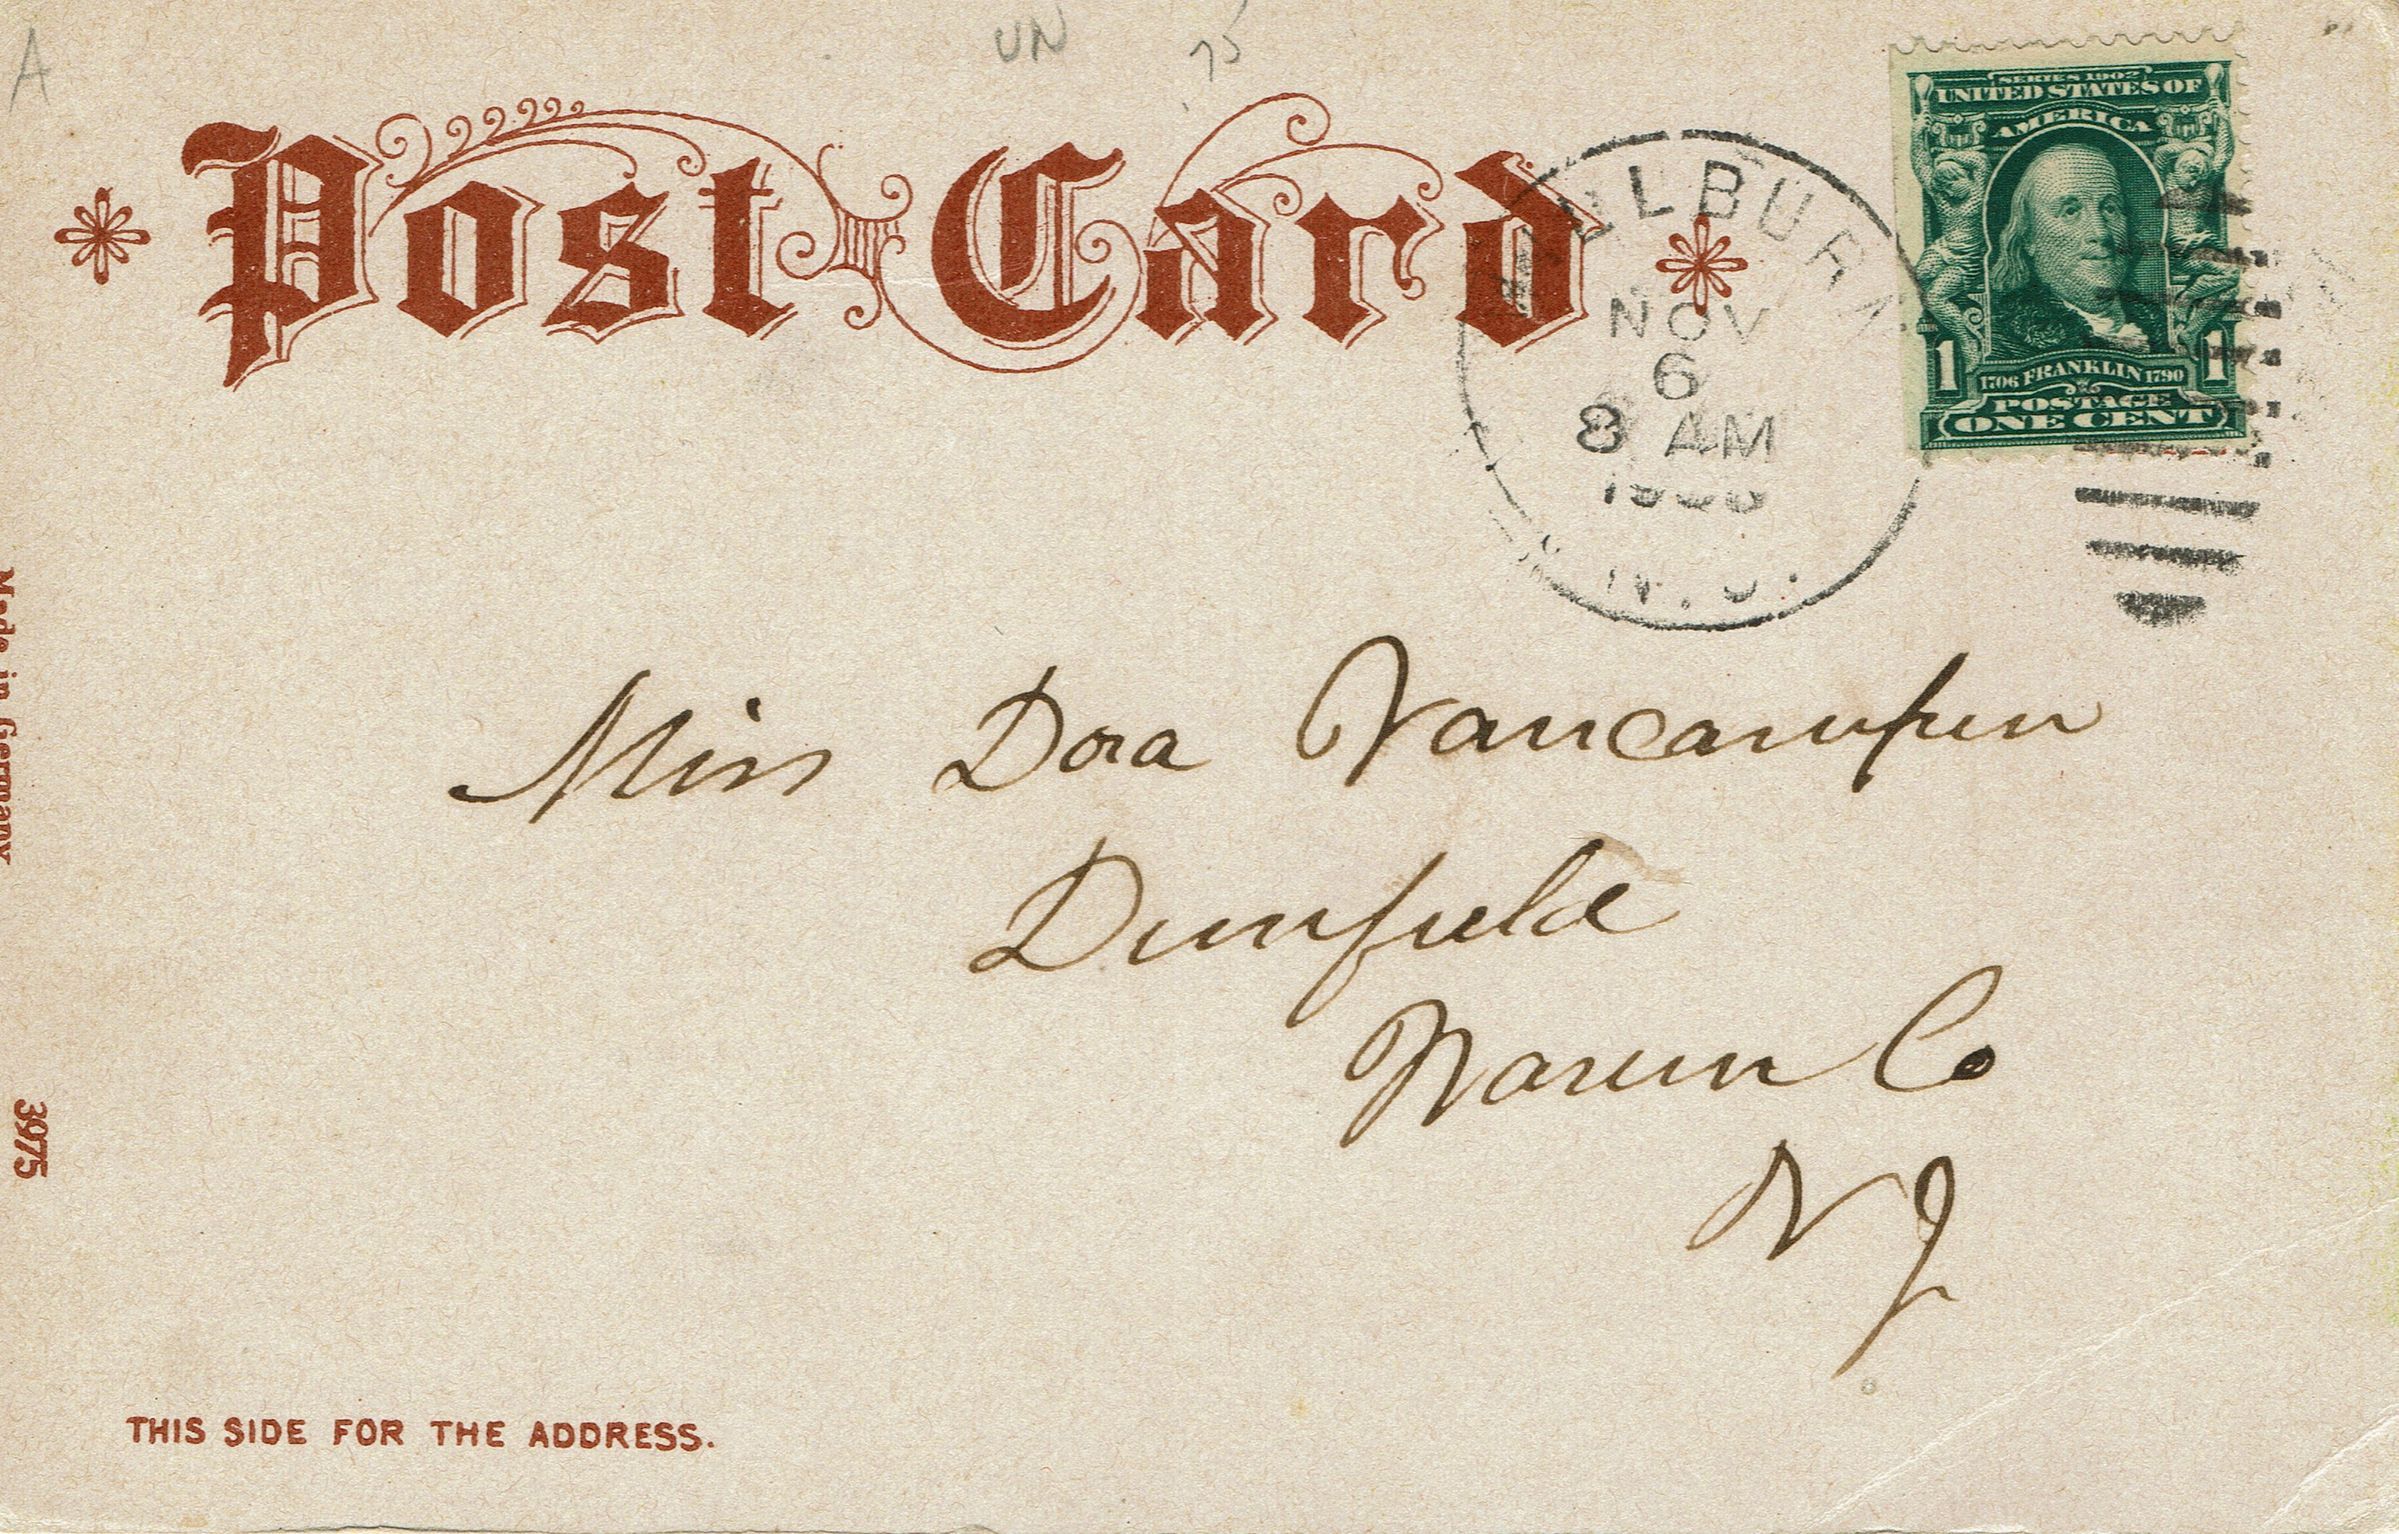 A
UN
75
Post Card
SERIES 1902
UNITED STATES OF
AMERICA
1 1706 FRANKLIN 1790 1
POSTAGE
ONE CENT
NOV
6
8 AM
N.J.
Miss Dora Vancampen
Dunfield
Warren Co
N J
Made in Germany
3975
THIS SIDE FOR THE ADDRESS.